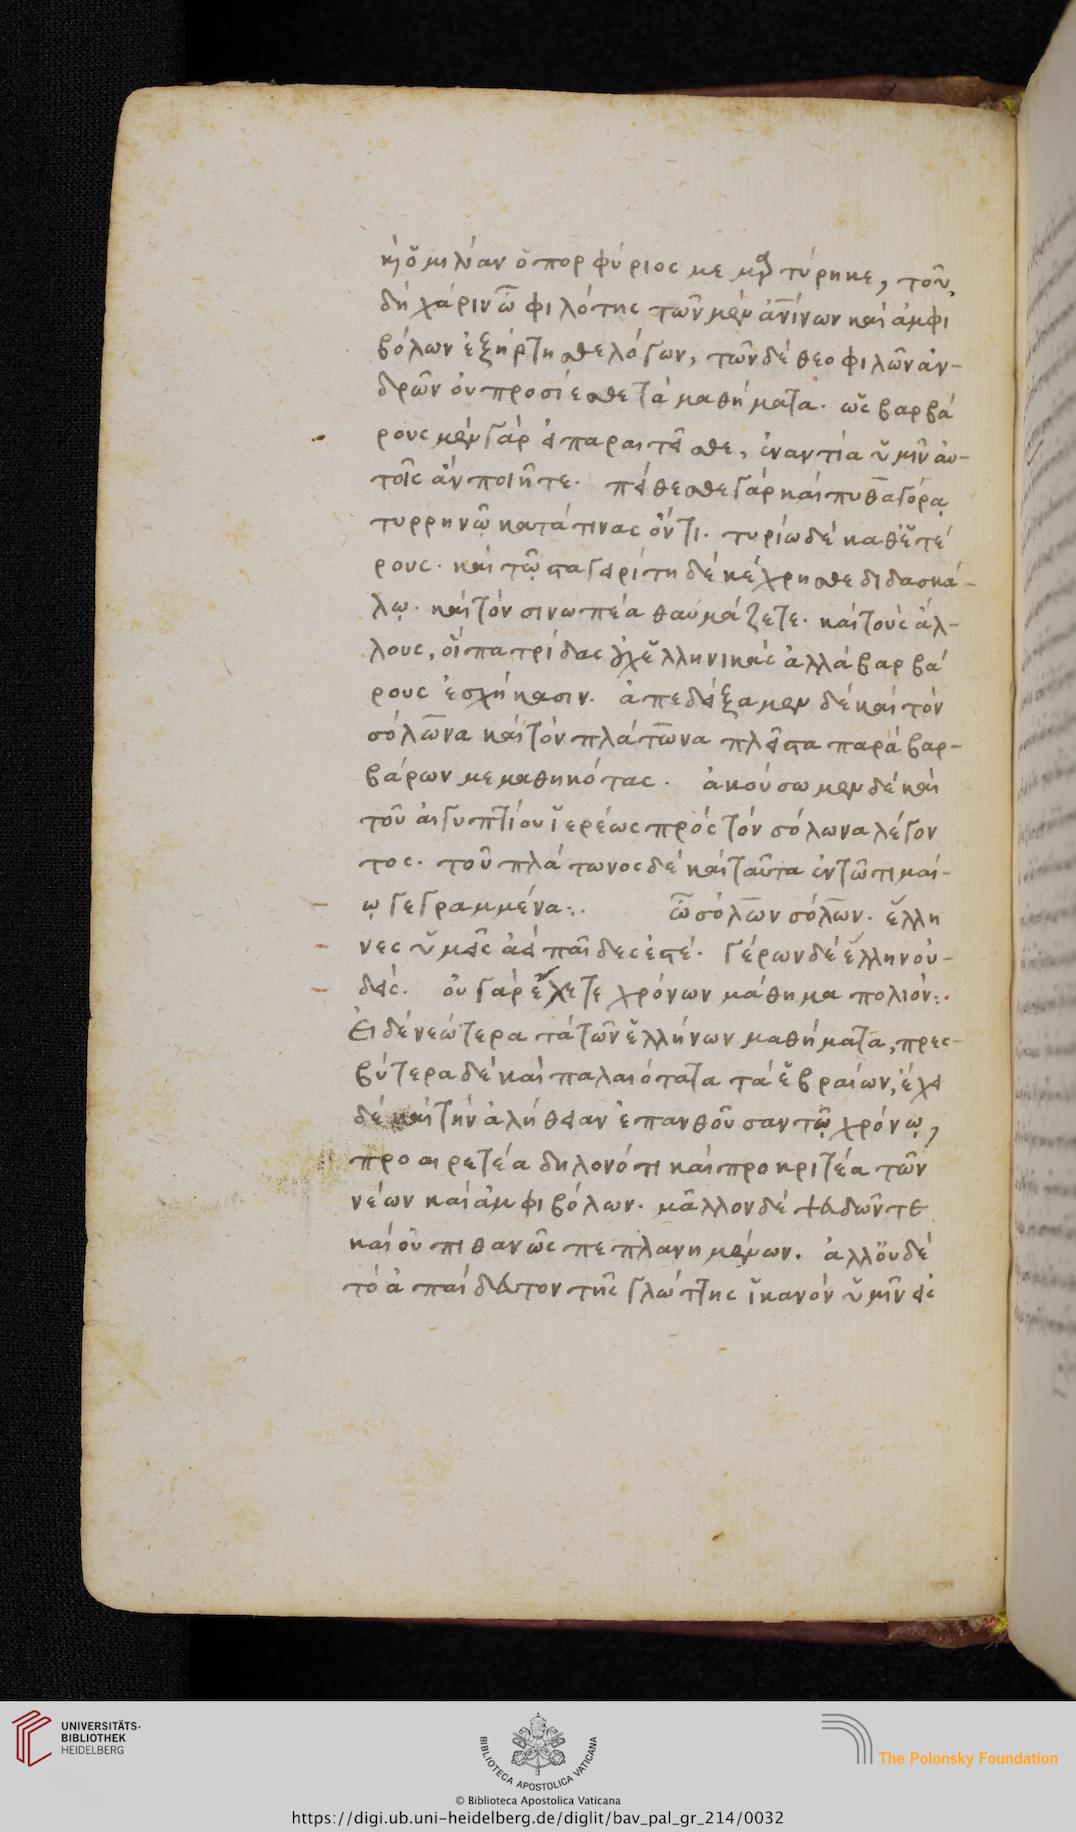 κὴ ὁμιλίαν ὁ πορφύριος μεμαρτύρηκε, τοῦ
δὴ χάριν ὦ φιλότης τῶν μὲν ἀνίνων καὶ ἀμφι
βόλων ἐξήρτησθε λόγων, τῶν δὲ θεοφιλῶν ἀν-
δρῶν οὐ προσίεσθε τὰ μαθήματα. ὡς βαρβά
ρους μὲν γὰρ εἰ παραιτεῖσθε, ἐναντία ὑμῖν αὐ-
τοῖς ἂν ποιῆτε. πείθεσθε γὰρ καὶ πυθαγόρᾳ
τυρρηνῷ κατά τινας ὄντι. τυρίω δὲ καθ' ἑτέ
ρους. καὶ τῷ σταγειρίτη δὲ κέχρησθε διδασκά-
λῳ. καὶ τὸν σινωπέα θαυμάζετε. καὶ τοὺς ἄλ-
λους, οἳ πατρίδας οὐχ' ἑλληνικὰς ἀλλὰ βαρβά
ρους ἐσχήκασιν. ἀπεδείξαμεν δὲ καὶ τὸν
σόλωνα καὶ τὸν πλάτωνα πλεῖστα παρὰ βαρ-
βάρων μεμαθηκότας. ἀκούσωμεν δὲ καὶ
τοῦ αἰγυπτίου ἱερέως πρὸς τὸν σόλωνα λέγον
τος. τοῦ πλάτωνος δὲ καὶ ταῦτα ἐν τῶ τιμαί-
ῳ γεγραμμένα:. ὦ σόλων σόλων. ἕλλη
νες ὑμεῖς ἀεὶ παῖδες ἐστέ. γέρων δὲ ἕλλην οὐ-
δείς. οὐ γὰρ ἔχετε χρόνων μάθημα πολιόν:.
Εἰ δὲ νεώτερα τὰ τῶν ἑλλήνων μαθήματα, πρες-
βύτερα δὲ καὶ παλαιότατα τὰ ἑβραίων, ἔχει
δὲ καὶ τὴν ἀλήθειαν ἐπανθοῦσαν τῷ χρόνῳ,
προαιρετέα δηλονότι καὶ προκριτέα τῶν
νέων καὶ ἀμφιβόλων. μᾶλλον δὲ ψευδῶν τε
καὶ οὐ πιθανῶς πεπλανημένων. ἀλλ' οὐδὲ
τὸ ἀπαίδευτον τῆς γλώττης ἱκανὸν ὑμῖν εἰς
UNIVERSITÄTS-
BIBLIOTHEK
HEIDELBERG
BIBLIOTECA APOSTOLICA VATICANA
The Polonsky Foundation
© Biblioteca Apostolica Vaticana
https://digi.ub.uni-heidelberg.de/diglit/bav_pal_gr_214/0032